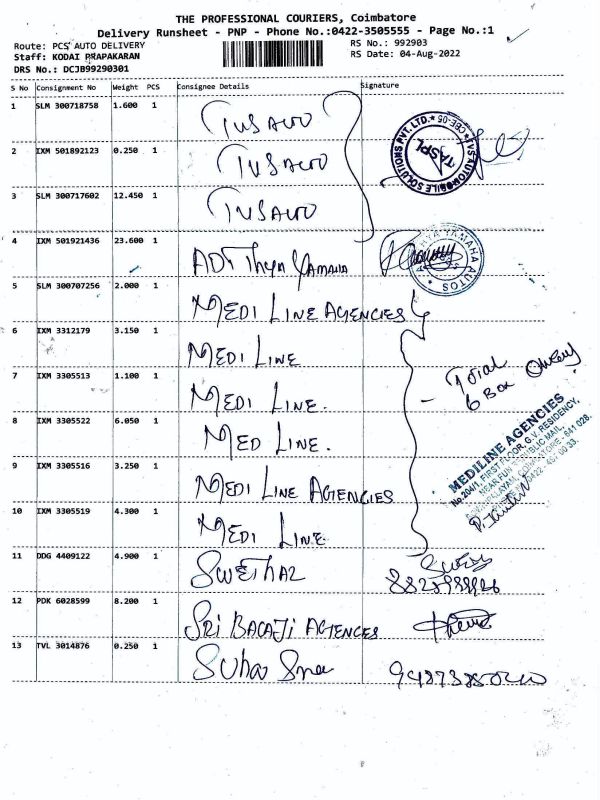 THE PROFESSIONAL COURIERS, Coimbatore
Delivery Runsheet - PNP - Phone No.:0422-3505555 - Page No.:1
Route: PCS AUTO DELIVERY
RS No.: 992903
Staff: KODAI PRAPAKARAN
RS Date: 04-Aug-2022
DRS No.: DCJB99290301
S No Consignment No Weight PCS Consignee Details Signature
1 SLM 300718758 1.600 1 TVS AUTO
TVS AUTOMOBILE SOLUTIONS PVT. LTD. * CBE-05 *
TASPL
2 IXM 501892123 0.250 1 TVS AUTO
3 SLM 300717602 12.450 1 TVS AUTO
4 IXM 501921436 23.600 1 ADITHYA YAMAHA
YAMAHA AUTOS
5 SLM 300707256 2.000 1 MEDI LINE AGENCIES
6 IXM 3312179 3.150 1 MEDI LINE
Total
6 Box Only
7 IXM 3305513 1.100 1 MEDI LINE.
8 IXM 3305522 6.050 1 MED LINE.
MEDILINE AGENCIES
No.204/1, FIRST FLOOR, G.V. RESIDENCY,
NEAR FUN REPUBLIC MALL,
COIMBATORE - 641 028.
9 IXM 3305516 3.250 1 MEDI LINE AGENCIES
10 IXM 3305519 4.300 1 MEDI LINE
11 DDG 4409122 4.900 1
12 PDK 6028599 8.200 1 SRI BALAJI AGENCES
13 TVL 3014876 0.250 1